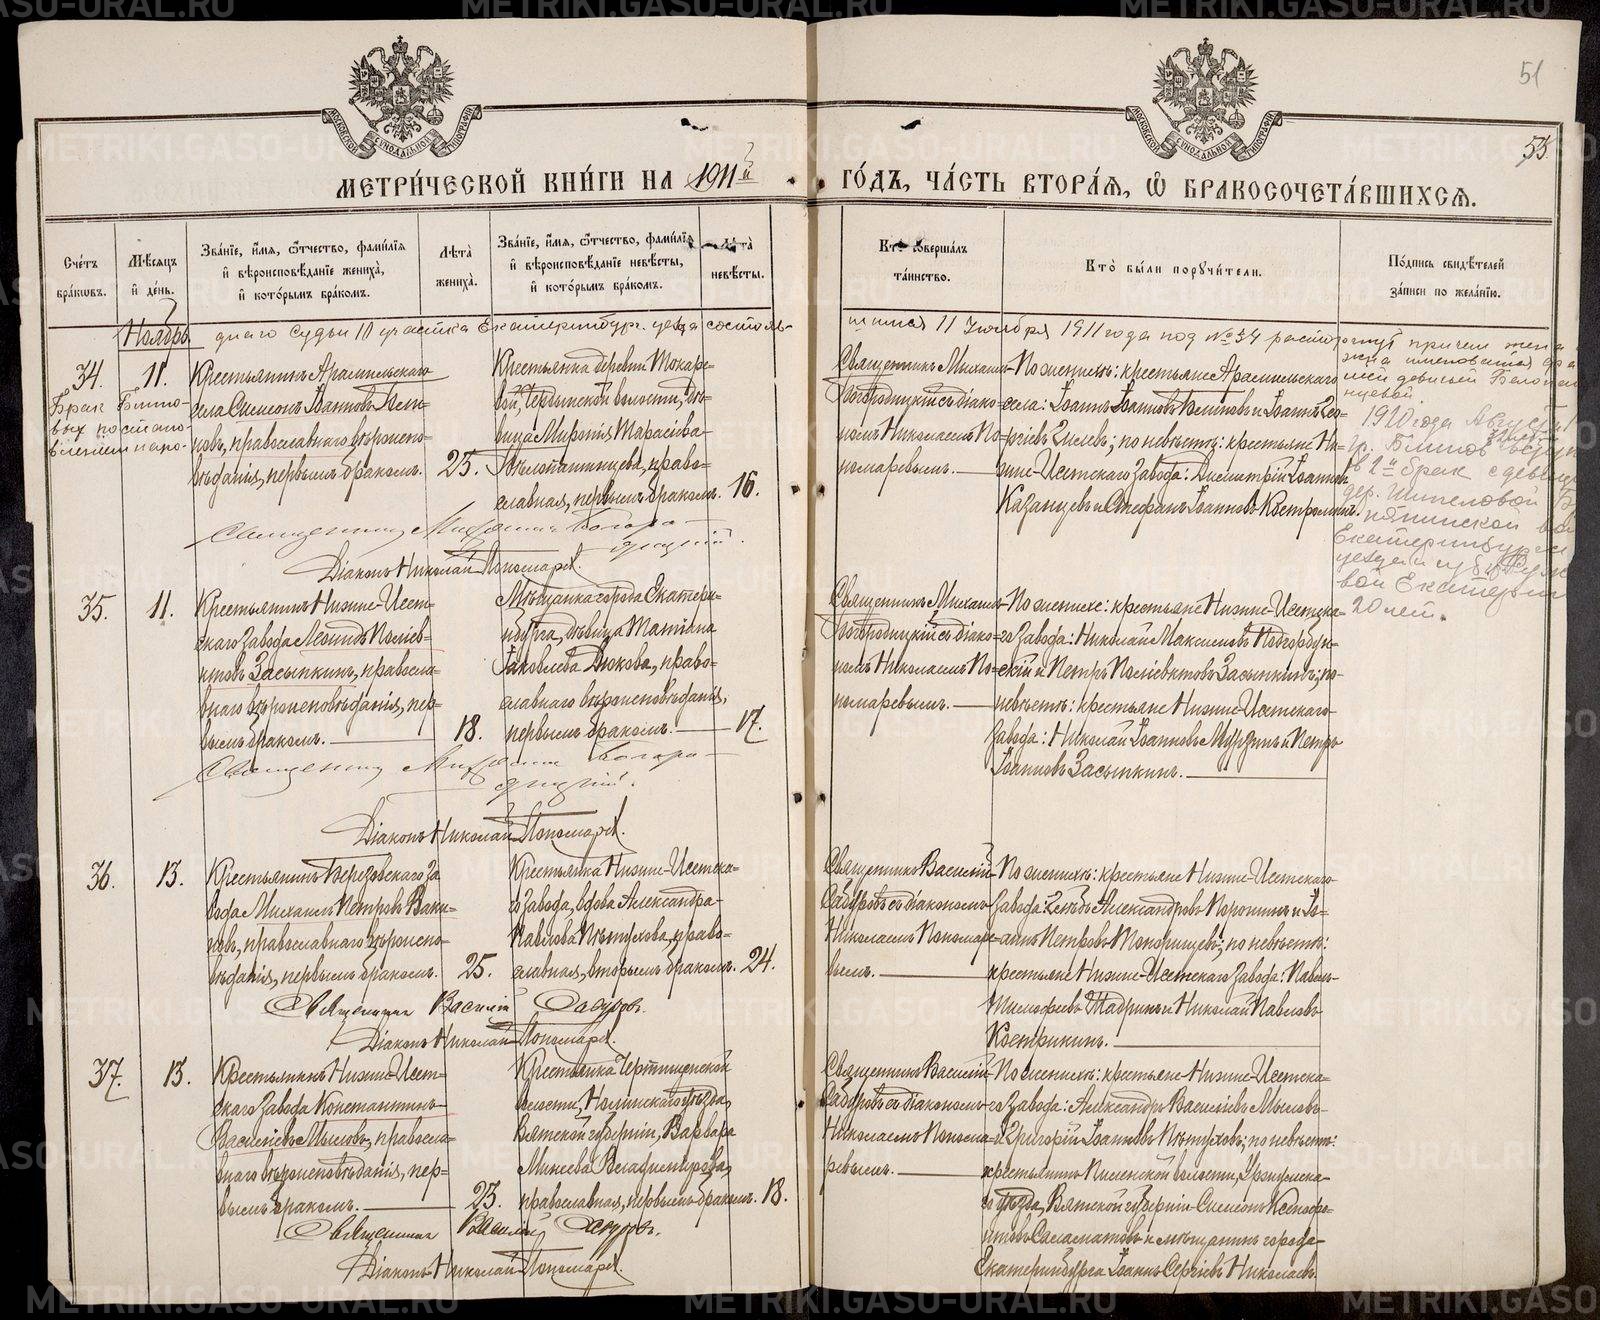 METRIKI.GASO-URAL.RU
51
55.
МОСКОВСКОЙ СѴНОДАЛЬНОЙ ТИПОГРАФІИ
МЕТРИ́ЧЕСКОЙ КНИ́ГИ НА 1911й ГО́ДЪ, ЧА́СТЬ ВТОРА́Ѧ, Ѡ БРАКОСОЧЕТА́ВШИХСѦ.
Сче́тъ бра́кωвъ.
Мѣ́сѧцъ и҆ де́нь.
Зва́нїе, и҆́мѧ, ѻ҆́тчество, фами́лїѧ и҆ вѣроисповѣ́данїе жениха̀, и҆ кото́рымъ бра́комъ.
Лѣ́та жениха̀.
Зва́нїе, и҆́мѧ, ѻ҆́тчество, фами́лїѧ и҆ вѣроисповѣ́данїе невѣ́сты, и҆ кото́рымъ бра́комъ.
Лѣ́та невѣ́сты.
Кто̀ соверша́лъ та́инство.
Кто̀ бы́ли порꙋчи́тели.
По́дпись свидѣ́телей за́писи по жела́нїю.
Ноябрь
34.
11.
Брак Блино-
вых постано-
влением наро-
днаго судьи 11 участка Екатеринбург. уезда состояв-
шимся 11 ноября 1911 года под № 34 расторгнут причем жена
Крестьянинъ Арамильскаго
села Симеонъ Іоанновъ Блин-
новъ, православнаго вѣроиспо-
вѣданія, первымъ бракомъ.
25.
Крестьянка деревни Токаре-
вой,
вица Миропія Тарасова
Бѣлопашинцева, право-
славная, первымъ бракомъ.
16.
Священникъ Михаилъ
Богородицкій съ діако-
номъ Николаемъ По-
номаревымъ.
По женихѣ: крестьяне Арамильскаго
села: Іоаннъ Іоанновъ Блиновъ и Іоаннъ Геор-
гіевъ по невѣстѣ: крестьяне Ни-
жне-Исетскаго завода: Димитрій Іоанновъ
Казанцевъ и Стефанъ Іоанновъ Костроминъ.
1920 года Августа
гр. Блинов
во 2й брак с девицей
дер. Шипеловой
Екатеринбургск
уезда и губ.
вой Екатерин
20 лет.
Священникъ Михаилъ Богоро-
дицкій.
Діаконъ Николай Пономарев.
35.
11.
Крестьянинъ Нижне-Исет-
скаго завода Леонидъ Поліев-
ктовъ Засыпкинъ, правосла-
внаго вѣроисповѣданія, пер-
вымъ бракомъ.
18.
Мѣщанка города Екатери-
нбурга, дѣвица Татіана
Іаковлева Дюкова, право-
славнаго вѣроисповѣданія,
первымъ бракомъ.
17.
Священникъ Михаилъ
Богородицкій съ діако-
номъ Николаемъ По-
номаревымъ.
По женихе: крестьяне Нижне-Исетска-
го завода: Николай Максимовъ Подгорбун-
скій и Петръ Поліевктовъ Засыпкинъ; по
невѣстѣ: крестьяне Нижне-Исетскаго
завода: Николай Іоанновъ Мурзинъ и Петръ
Іоанновъ Засыпкинъ.
Священникъ Михаилъ Богоро-
дицкій.
Діаконъ Николай Пономарев.
36.
13.
Крестьянинъ Березовскаго за-
вода Михаилъ Петровъ Ваку-
ловъ, православнаго вѣроиспо-
вѣданія, первымъ бракомъ.
25.
Крестьянка Нижне-Исетска-
го завода, вдова Александра
Павлова Пѣтухова, право-
славная, вторымъ бракомъ.
24.
Священникъ Василій
Сабуровъ съ діакономъ
Николаемъ Пономаре-
вымъ.
По женихѣ: крестьяне Нижне-Исетскаго
завода: Глѣбъ Александровъ Порошинъ и Іо-
аннъ Петровъ Топорищевъ; по невѣстѣ:
крестьяне Нижне-Исетскаго завода: Павелъ
Тимофеевъ Шадринъ и Николай Павловъ
Кострикинъ.
Священникъ Василій Сабуровъ.
Діаконъ Николай Пономарев.
37.
13.
Крестьянинъ Нижне-Исет-
скаго завода Константинъ
Василіевъ Мыловъ, правосла-
внаго вѣроисповѣданія, пер-
вымъ бракомъ.
23.
Крестьянка
волости, Нолинскаго уѣзда,
Вятской губерніи, Варвара
Минеева Владимірова,
православная, первымъ бракомъ.
18.
Священникъ Василій
Сабуровъ съ діакономъ
Николаемъ Понома-
ревымъ.
По женихѣ: крестьяне Нижне-Исетска-
го завода: Александръ Василіевъ Мыловъ
и Григорій Іоанновъ Пѣтуховъ; по невѣстѣ:
крестьянинъ волости,
уѣзда, Вятской губерніи Симеонъ Ксенофо-
нтовъ Саламатовъ и мѣщанинъ города
Екатеринбурга Іоаннъ Сергіевъ Николаевъ.
Священникъ Василій Сабуровъ.
Діаконъ Николай Пономарев.